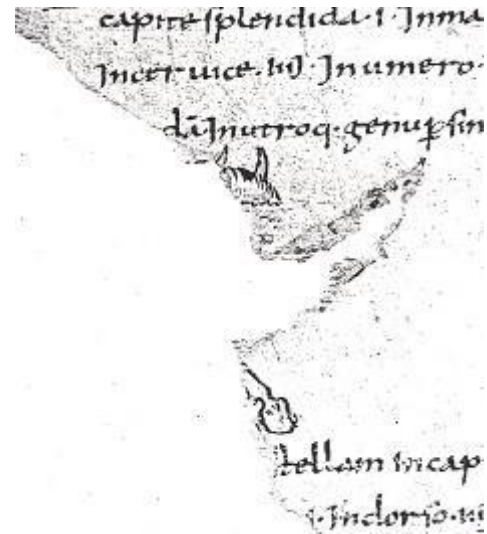 capite splendida · i · In ma
In ceruice · iiij · In umero ·
dā In utroq · genu ꝑ sin
tellam in cap
· In dorso · iij